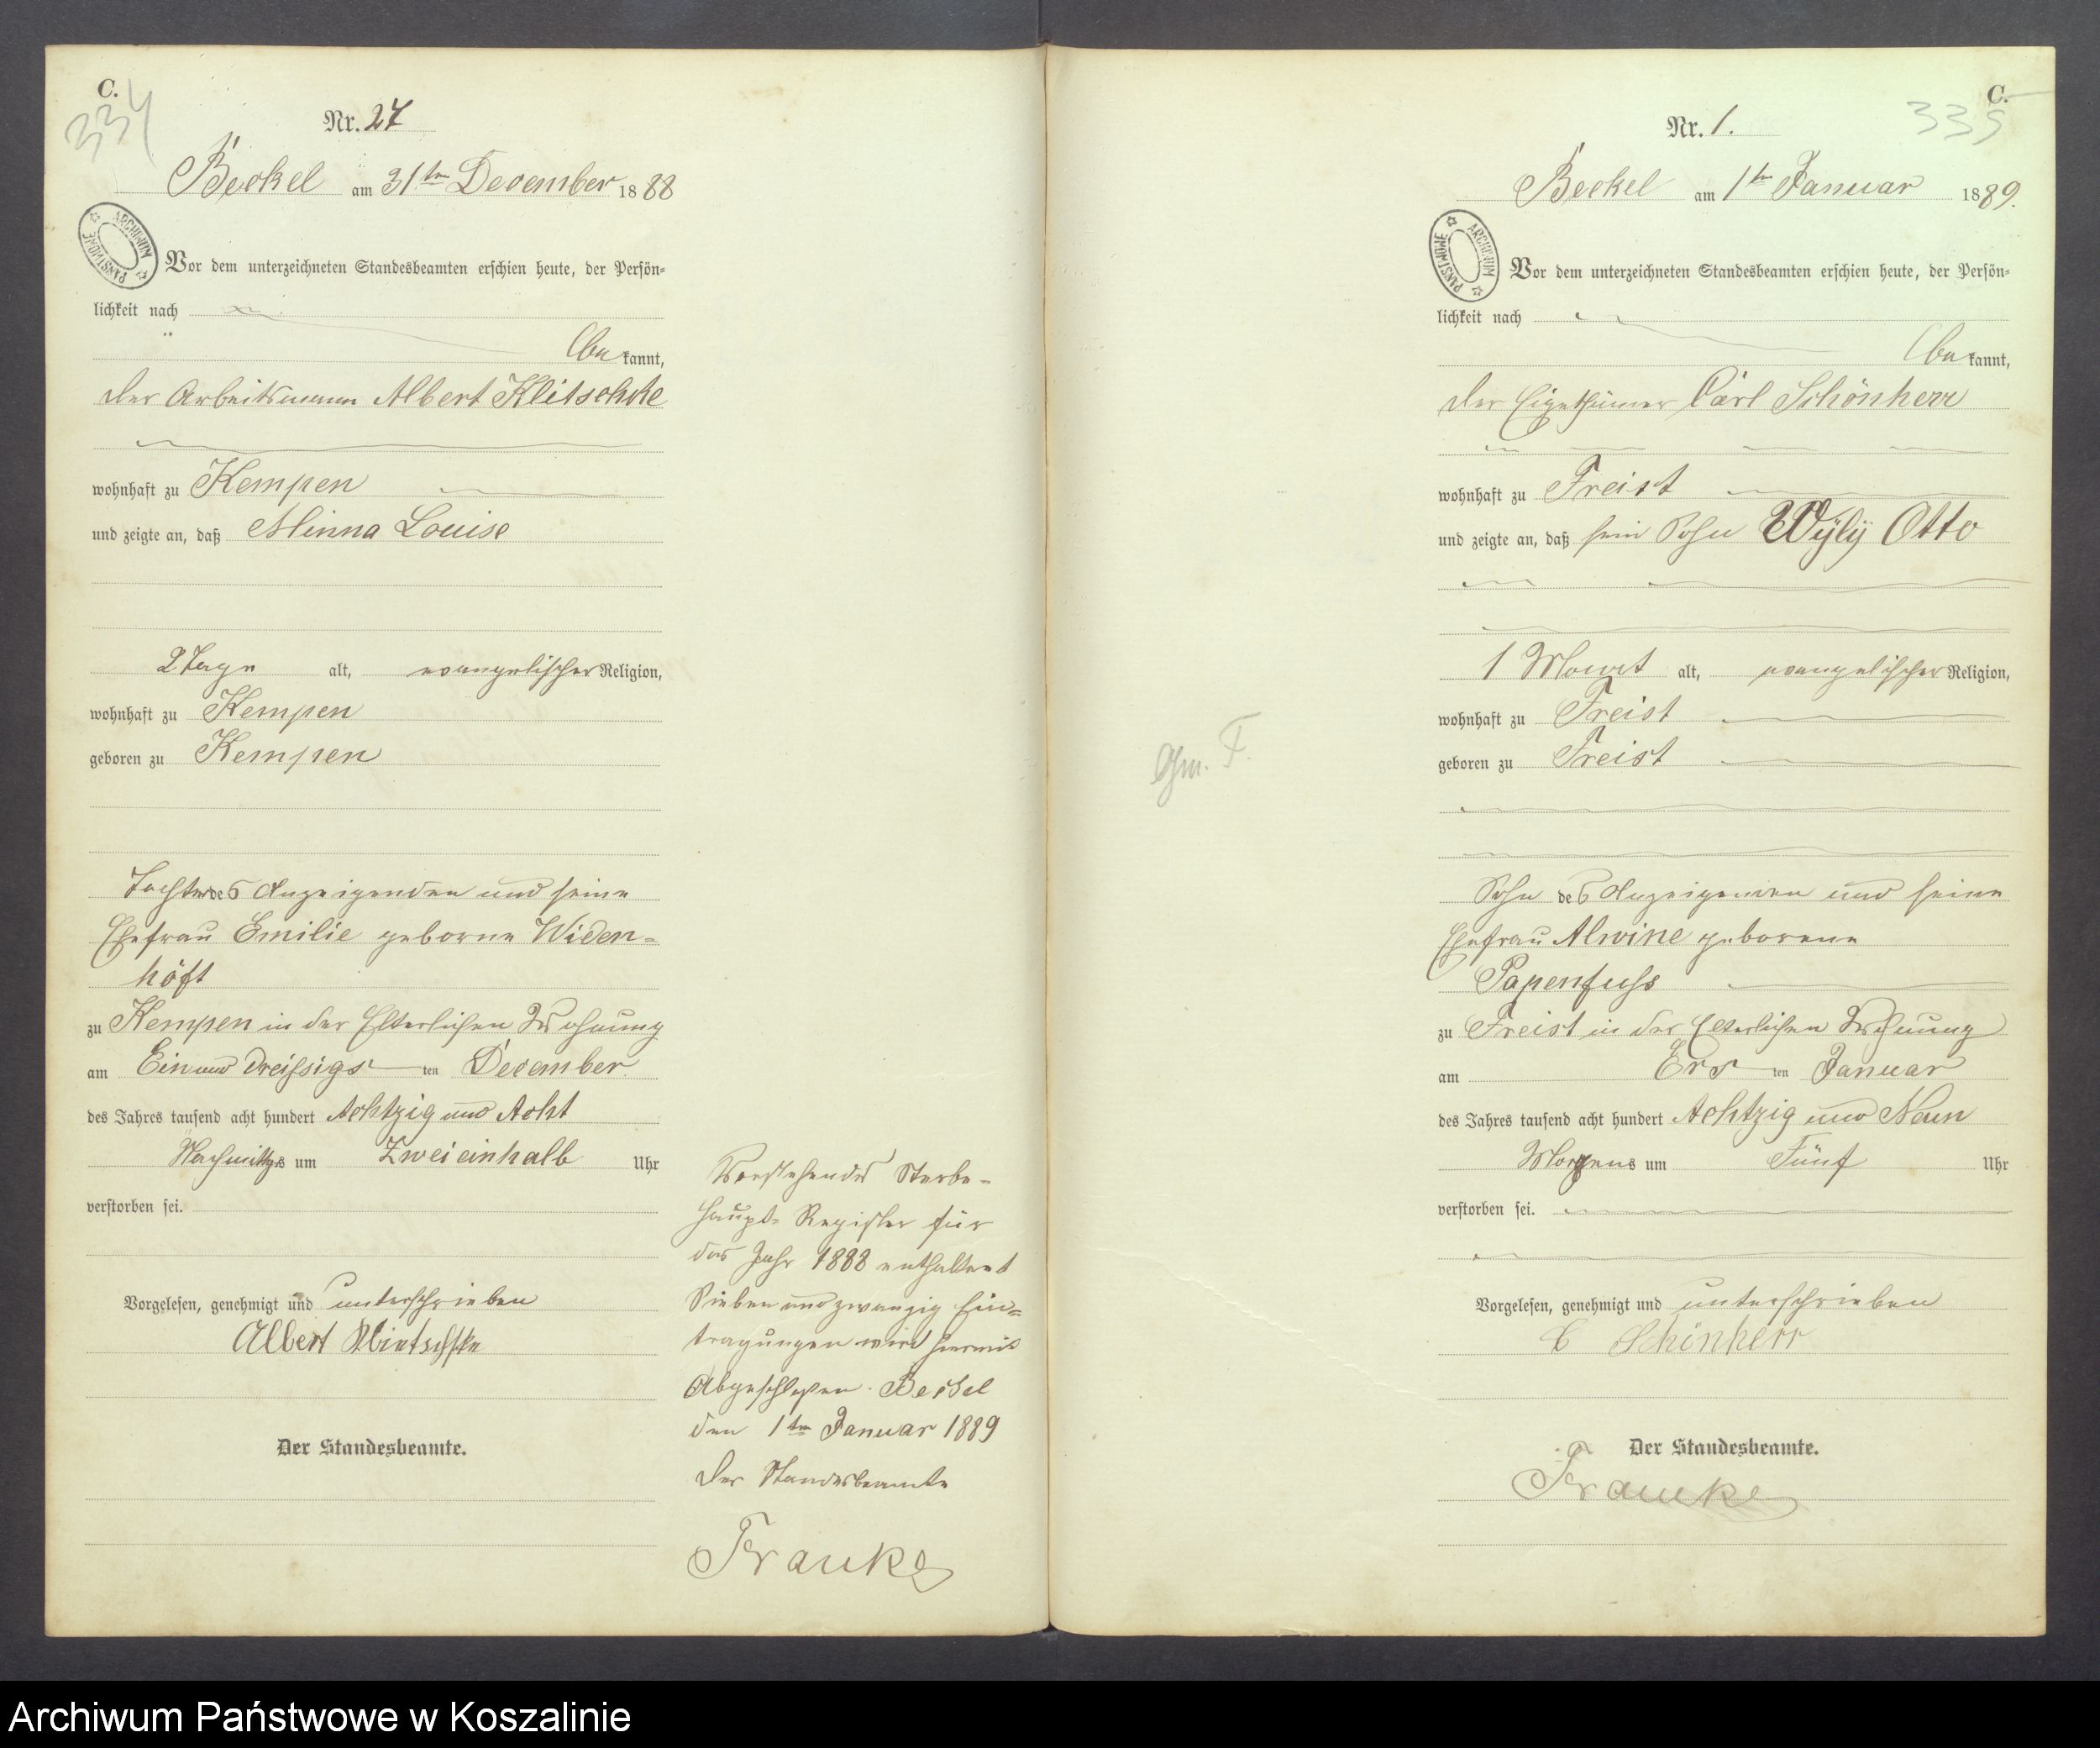 C.
334
Nr. 27
Beckel am 31ten December 1888
ARCHIWUM PAŃSTWOWE
Vor dem unterzeichneten Standesbeamten erschien heute, der Persön-
lichkeit nach
bekannt,
der Arbeitsmann Albert Klitschke
wohnhaft zu Kempen
und zeigte an, daß Minna Louise
2 Tage alt, evangelischer Religion,
wohnhaft zu Kempen
geboren zu Kempen
Tochter des Anzeigenden und seine
Ehefrau Emilie geborne Widen-
höft
zu Kempen in der Elterlichen Wohnung
am Ein und Dreißigsten December
des Jahres tausend acht hundert Achtzig und Acht
Nachmittags um Zwei einhalb Uhr
verstorben sei.
Vorgelesen, genehmigt und unterschrieben
Albert
Der Standesbeamte.
Vorstehendes Sterbe-
Haupt-Register für
das Jahr 1888 enthaltent
Sieben und zwanzig Ein-
tragungen wird hiermit
Abgeschloßen. Beckel
den 1ten Januar 1889
Der Standesbeamte
Franke
C.
335
Nr. 1.
Beckel am 1ten Januar 1889.
ARCHIWUM PAŃSTWOWE
Vor dem unterzeichneten Standesbeamten erschien heute, der Persön-
lichkeit nach
bekannt,
der Eigethümer Carl Schönherr
wohnhaft zu Freist
und zeigte an, daß sein Sohn Wÿlÿ Otto
1 Monat alt, evangelischer Religion,
wohnhaft zu Freist
geboren zu Freist
Sohn des Anzeigenden und seine
Ehefrau Alwine geborene
Papenfuss
zu Freist in der Elterlichen Wohnung
am Ersten Januar
des Jahres tausend acht hundert Achtzig und Neun
Morgens um Fünf Uhr
verstorben sei.
Vorgelesen, genehmigt und unterschrieben
C Schönherr
Der Standesbeamte.
Franke
Archiwum Państwowe w Koszalinie